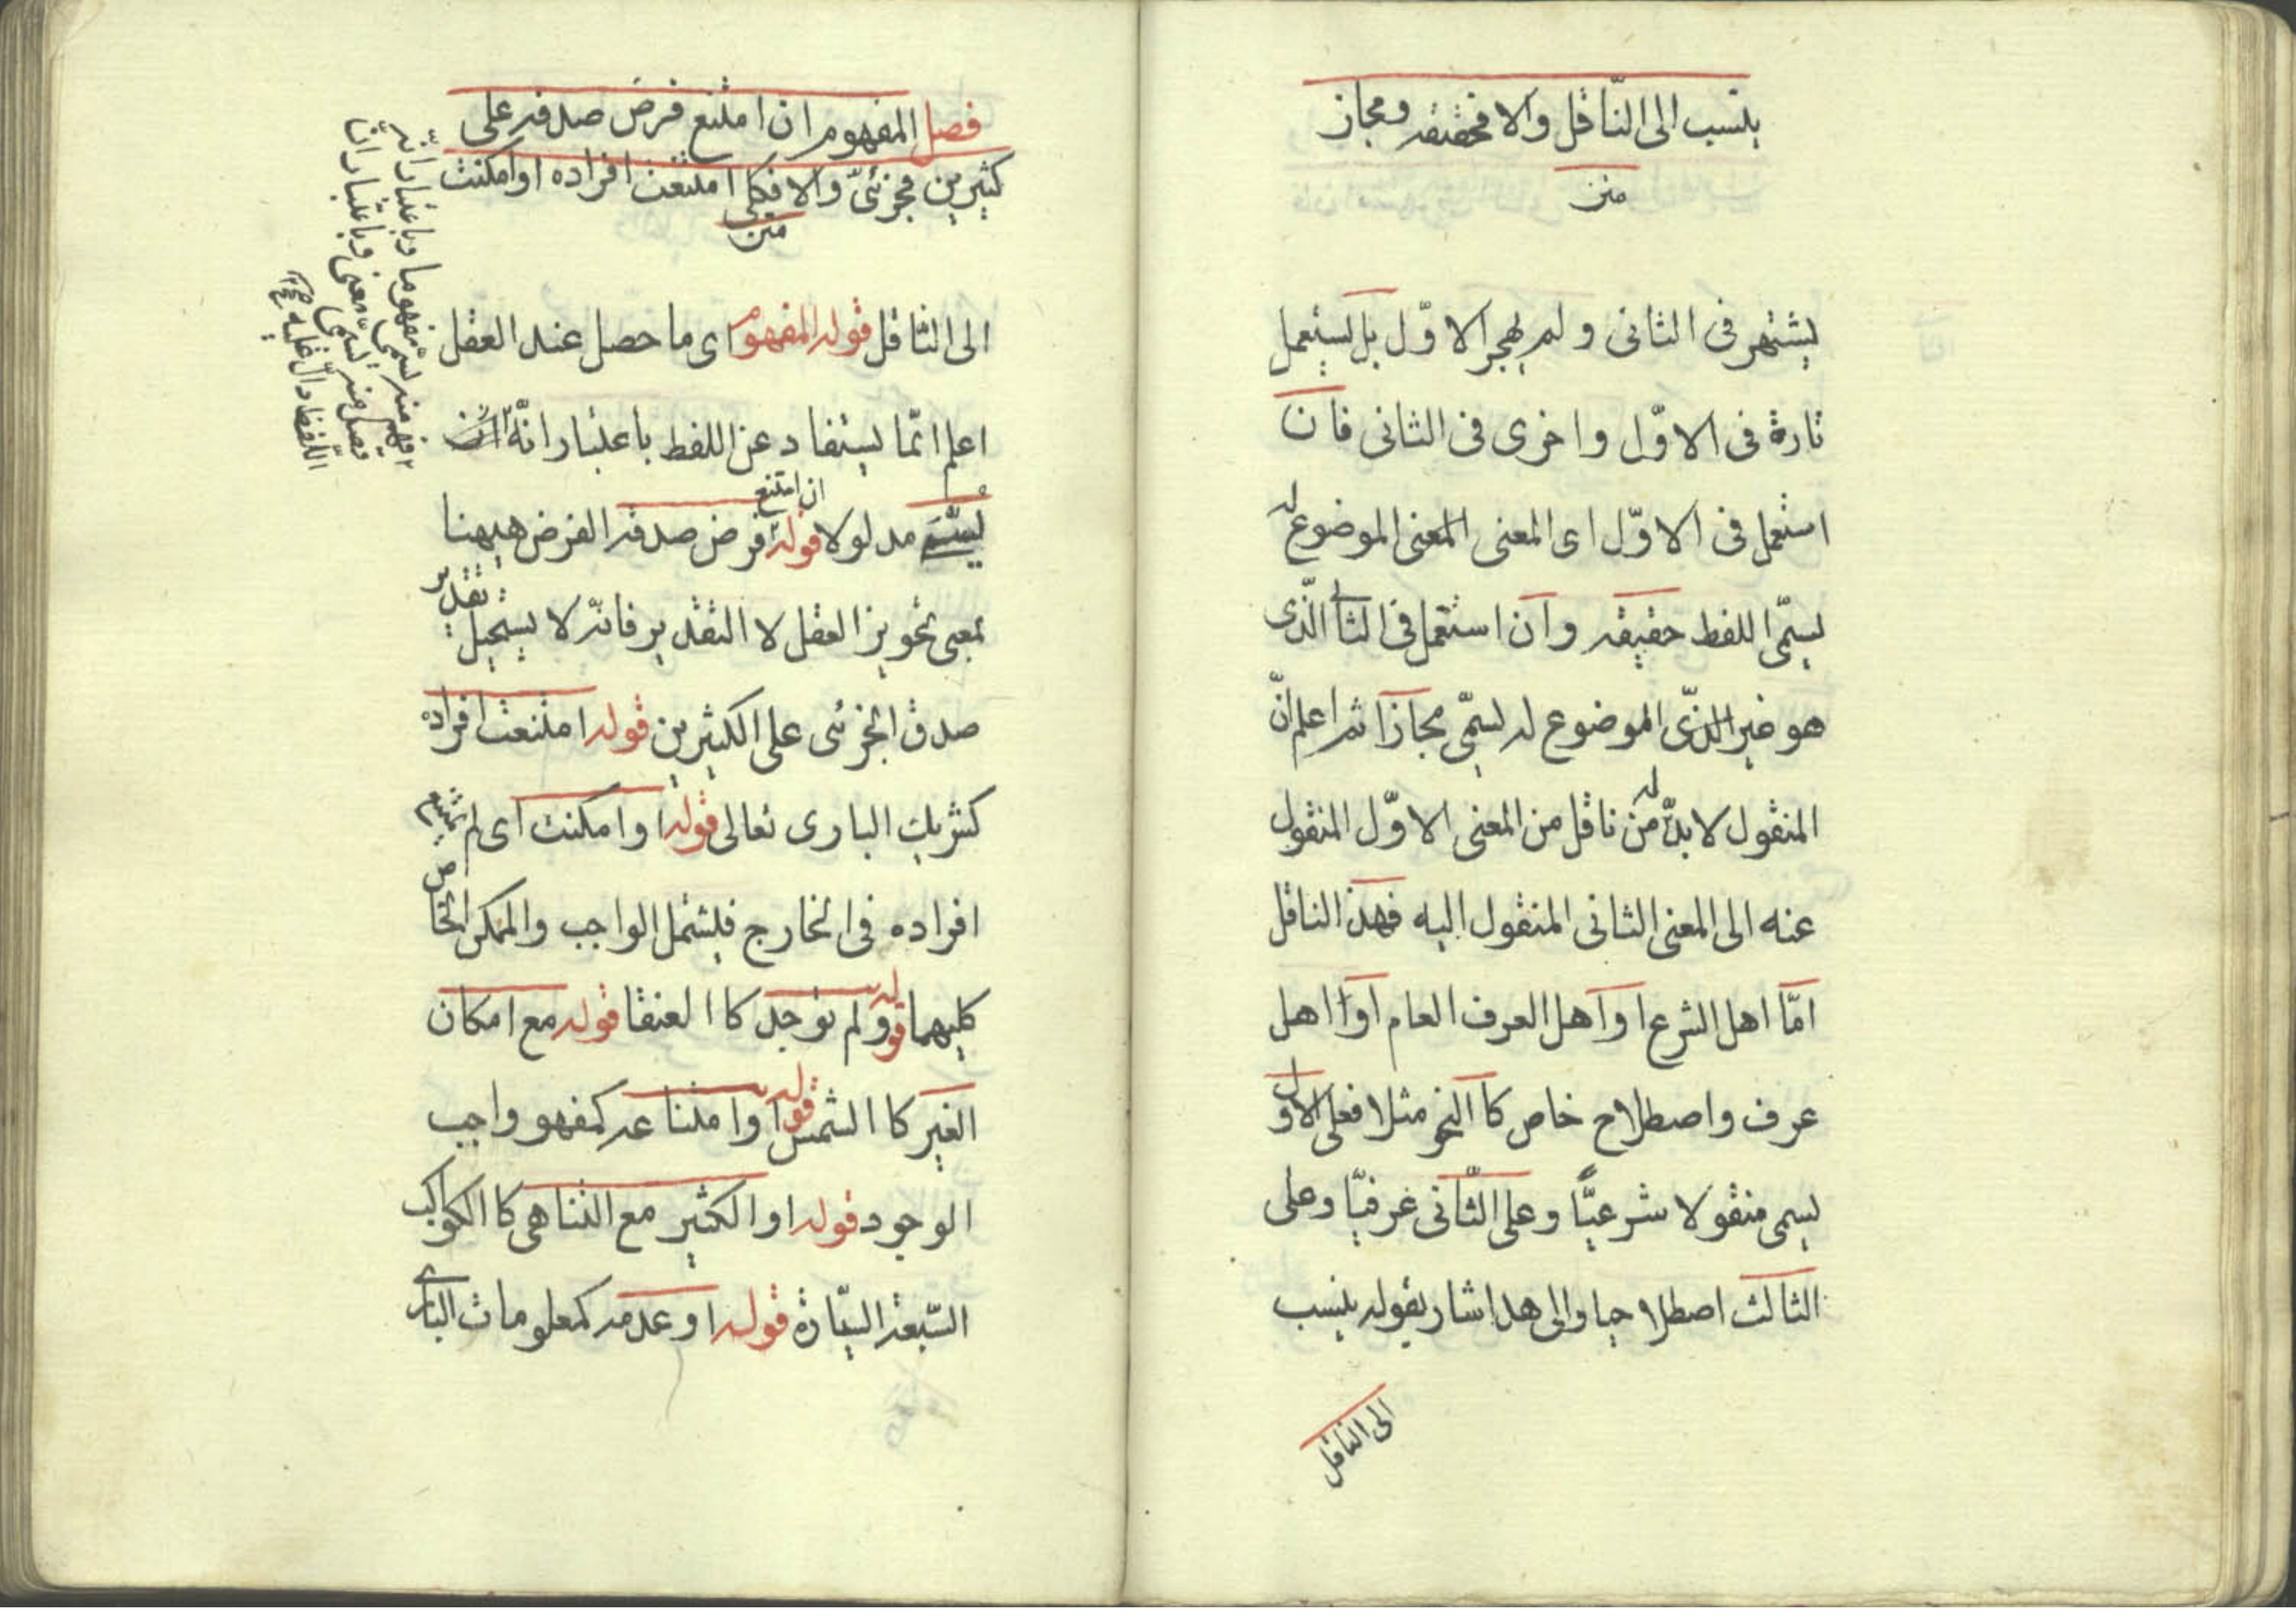 ينسب الى النّاقل والا فحقيقه ومجاز
متن
يشتهر فى الثانى و لم يهجر الاوّل بل يستعمل
تارة فى الاوّل واخرى فى الثانى فان
استعمل فى الاوّل اى المعنى المعنى الموضوع له
يسمّى اللفط حقيقه وان استعمل فى الثا الذّى
هو غير الذّى الموضوع له يسمّى مجازا ثم اعلم انّ
المنقول لا بدّ له من ناقل من المعنى الاوّل المنقول
عنه الى المعنى الثانى المنقول اليه فهذ الناقل
امّا اهل الشرع او اهل العرف العام او اهل
عرف واصطلاح خاص كا النحو مثلا فعلى الاول
يسمى منقولا شرعيّا وعلى الثّانى عرفيّا وعلى
الثالث اصطلاحيا والى هذا اشار بقوله ينسب
الى الناقل
فصل المفهوم ان امتنع فرض صدقه على
كثيرين فجزئىّ والا فكلى امتنعت افراده او امكنت
متن
الى الناقل قوله المفهوم اى ما حصل عند العقل
اعلم انّما يستفاد عن اللفط باعتبار انّه
يسمّى مدلولا قوله ان امتنع فرض صدقه الفرض هيهنا
بمعبى تجويز العقل لا التقدير فانّه لا يستحيل تقدير
صدق الجزئى على الكثيرين قوله امتنعت افراده
كشريك البارى تعالى قوله او امكنت اى لم يمتنع
افراده فى الخارج فيشمل الواجب والممكن الخاص
كليهما قوله ولم توجد كا العنقا قوله مع امكان
الغير كا الشمس قوله او امتناعه كمفهو واجب
الوجود قوله او الكثير مع التناهى كا الكواكب
السّبعة السيّارة قوله او عدمه كمعلومات البارى
فهم منه يسمّى مفهوما وباعتبار انّه
قصل منه يسمّى معنى وباعتبار انّ
اللّفظ دالّ عليه صح